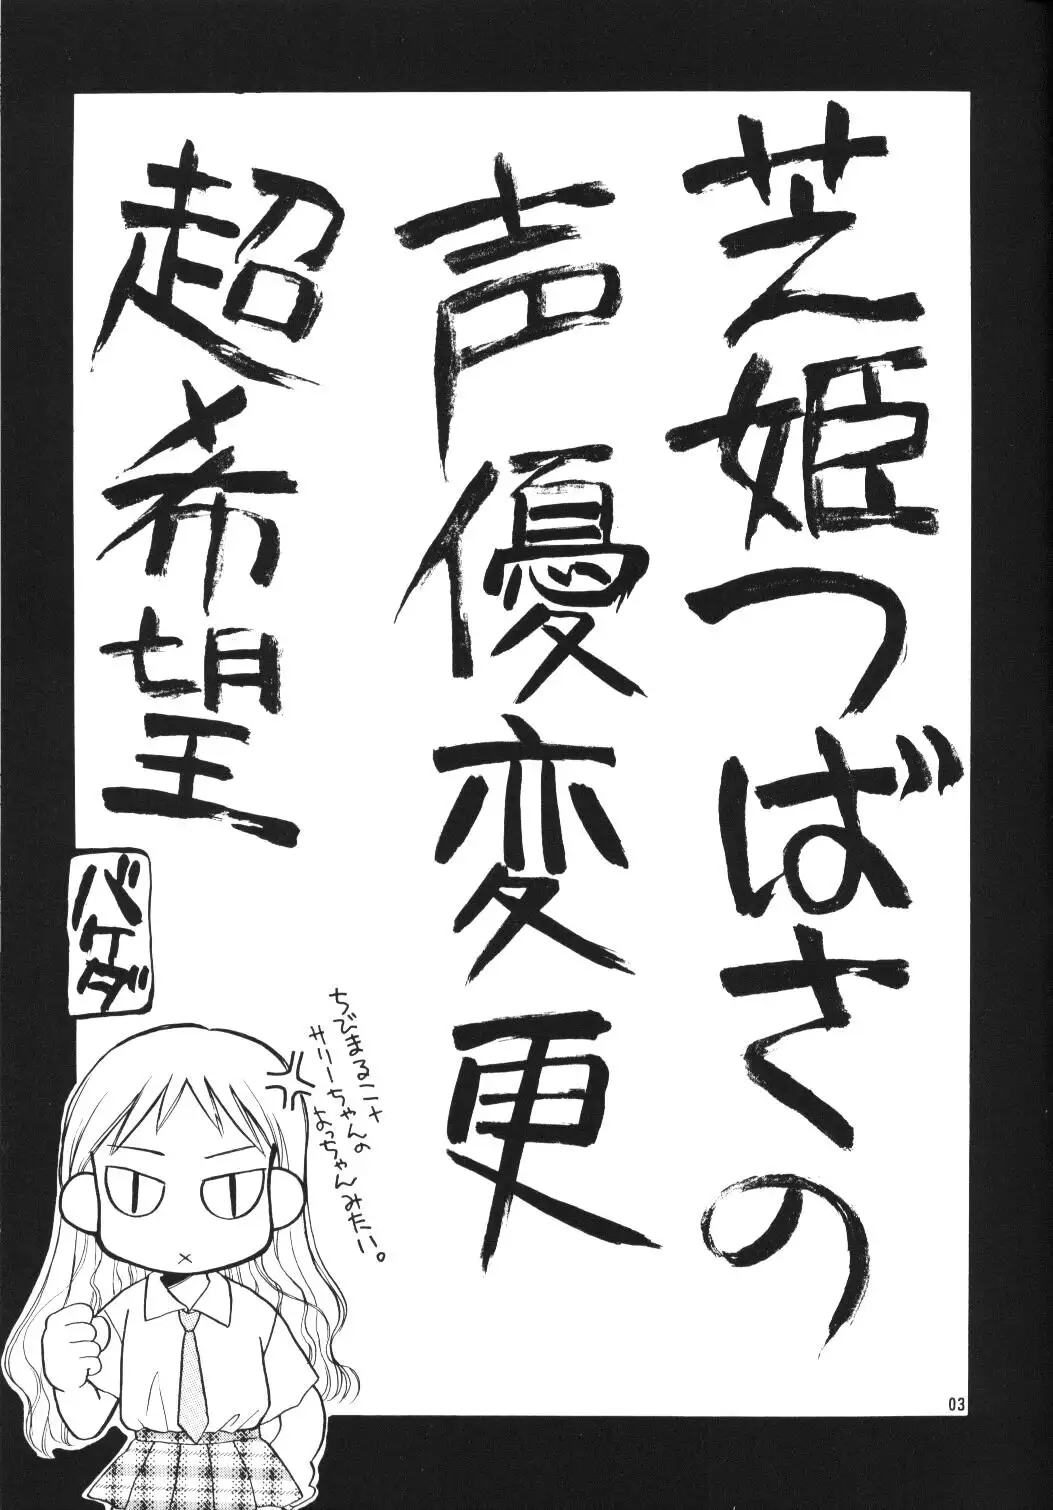 芝姫つばさの
声優変更
超希望
バケダ
ちびまるこさ
サリーちゃんの
よっちゃんみたい。
03